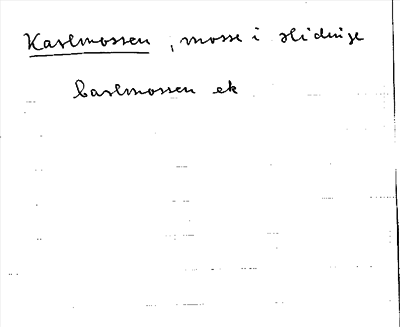 Karlmossen, mosse i Hidinge
Carlmossen ek